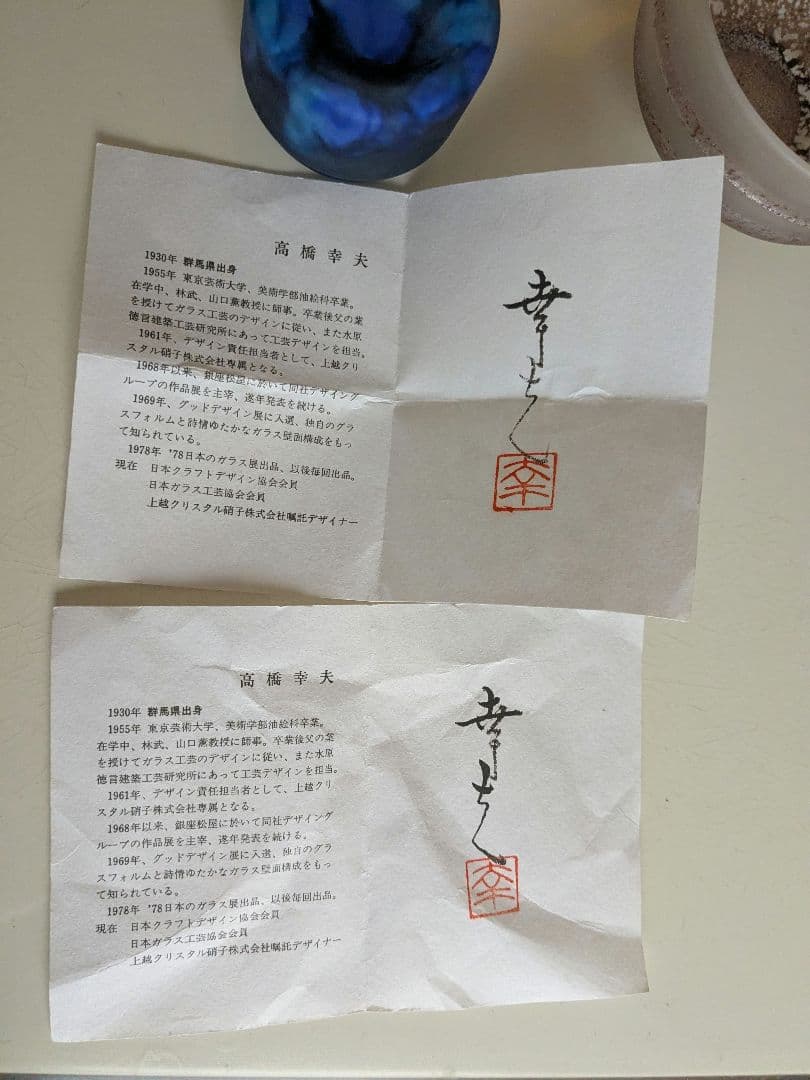 高橋幸夫
1930年 群馬県出身
1955年 東京芸術大学、美術学部油絵科卒業。
在学中、林武、山口薫教授に師事。卒業後父の業
を授けてガラス工芸のデザインに従い、また水原
徳言建築工芸研究所にあって工芸デザインを担当。
1961年、デザイン責任担当者として、上越クリ
スタル硝子株式会社専属となる。
1968年以来、銀座松屋に於いて同社デザイング
ループの作品展を主宰、逐年発表を続ける。
1969年、グッドデザイン展に入選、独自のグラ
スフォルムと詩情ゆたかなガラス壁面構成をもっ
て知られている。
1978年 '78日本のガラス展出品、以後毎回出品。
現在 日本クラフトデザイン協会会員
日本ガラス工芸協会会員
上越クリスタル硝子株式会社嘱託デザイナー
幸夫
幸
高橋幸夫
1930年 群馬県出身
1955年 東京芸術大学、美術学部油絵科卒業。
在学中、林武、山口薫教授に師事。卒業後父の業
を授けてガラス工芸のデザインに従い、また水原
徳言建築工芸研究所にあって工芸デザインを担当。
1961年、デザイン責任担当者として、上越クリ
スタル硝子株式会社専属となる。
1968年以来、銀座松屋に於いて同社デザイング
ループの作品展を主宰、逐年発表を続ける。
1969年、グッドデザイン展に入選、独自のグラ
スフォルムと詩情ゆたかなガラス壁面構成をもっ
て知られている。
1978年 '78日本のガラス展出品、以後毎回出品。
現在 日本クラフトデザイン協会会員
日本ガラス工芸協会会員
上越クリスタル硝子株式会社嘱託デザイナー
幸夫
幸